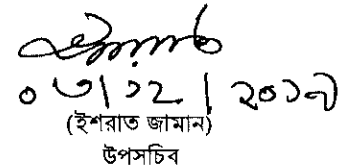 ০৩/১২/২০১৭
(ইশরাত জামান)
উপসচিব